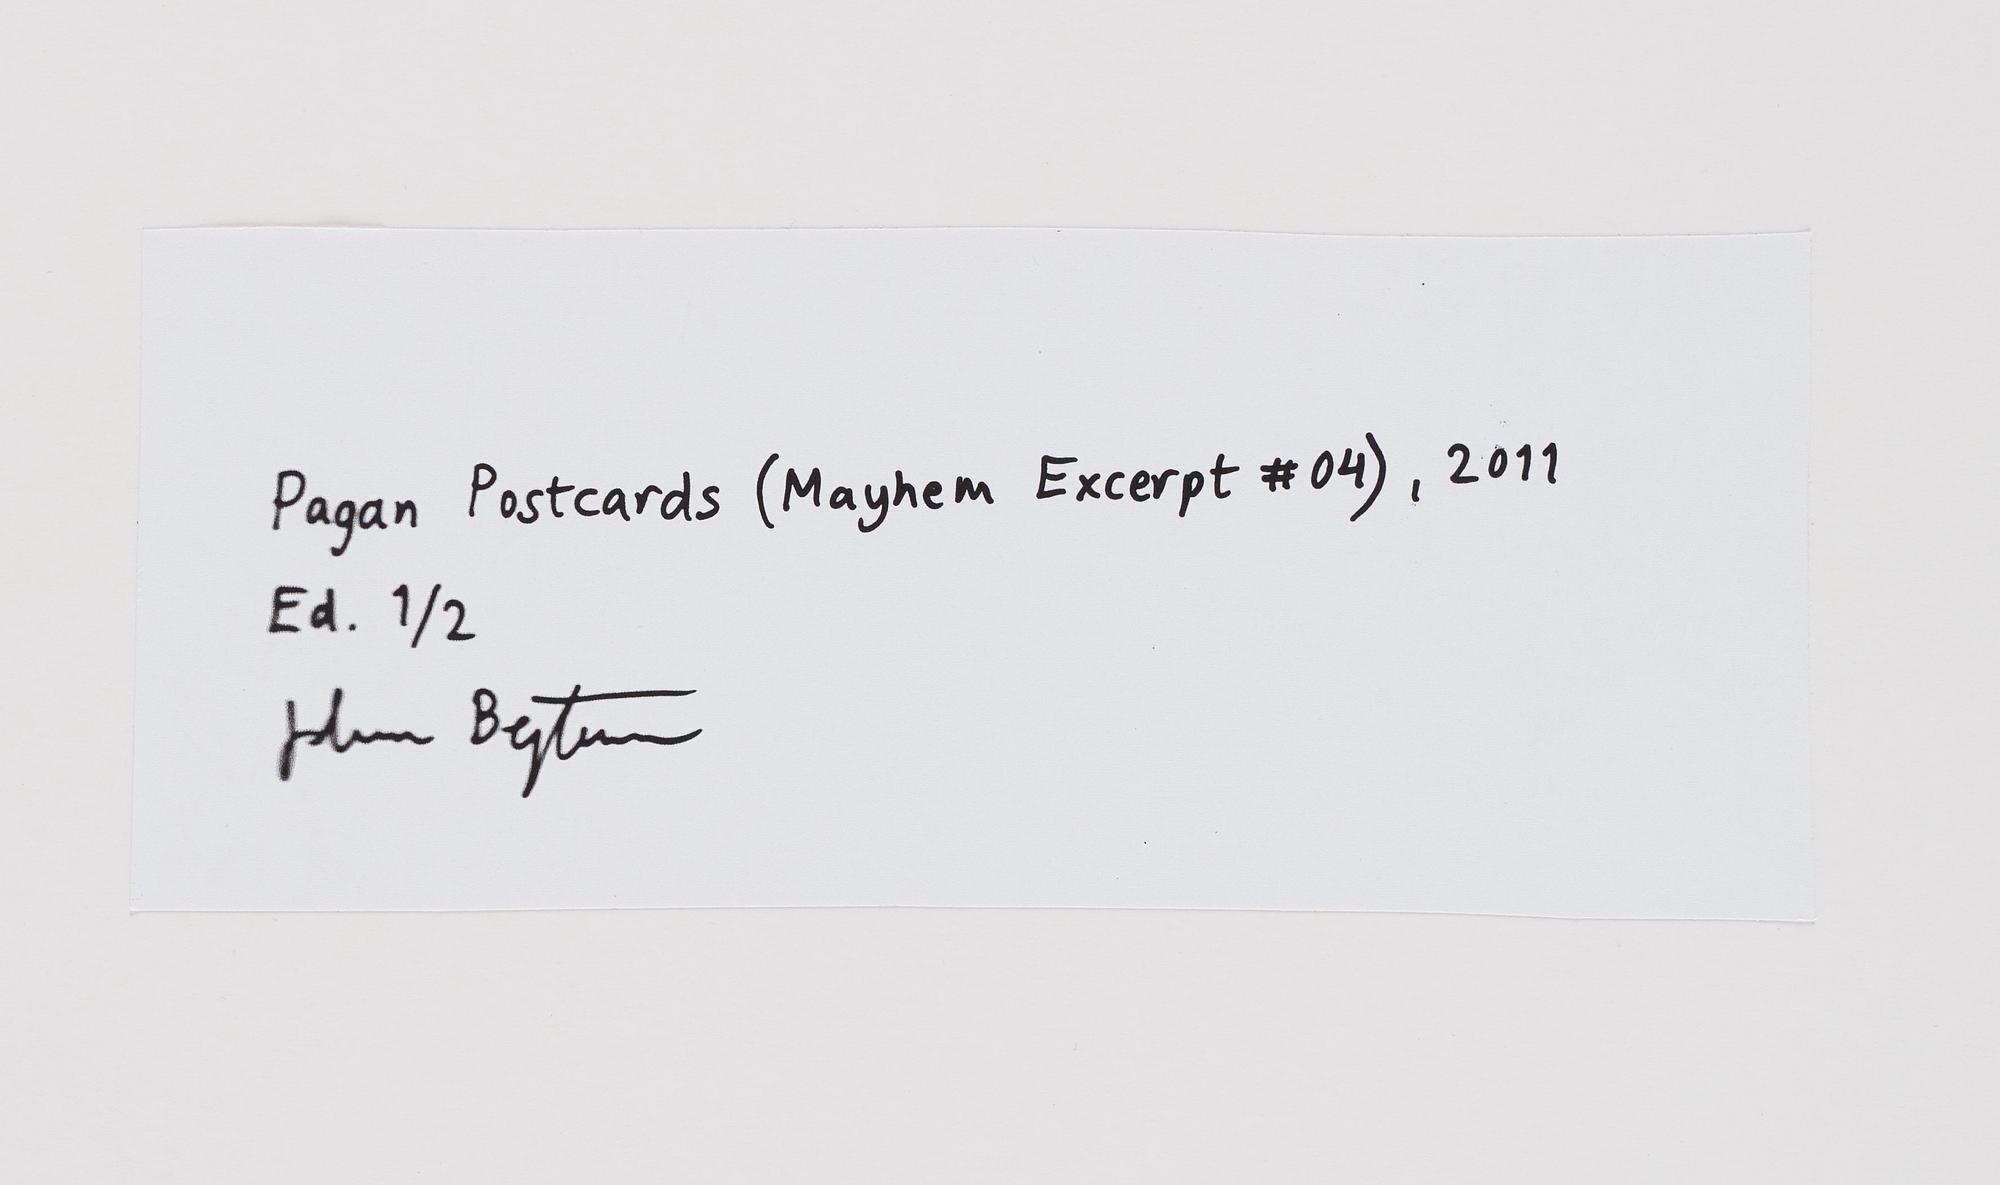 Pagan Postcards (Mayhem Excerpt #04), 2011
Ed. 1/2